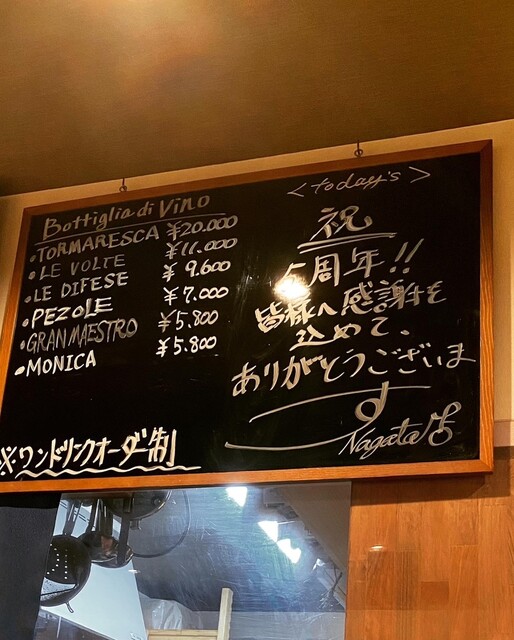 Bottiglia di Vino
・TORMARESCA ¥20.000
・LE VOLTE ¥11.000
・LE DIFESE ¥9.600
・PEZOLE ¥7.000
・GRAN MAESTRO ¥5.800
・MONICA ¥5.800
※ワンドリンクオーダー制
<today's>
祝
周年!!
皆様へ感謝を
込めて、
ありがとうございま
す
Nagata